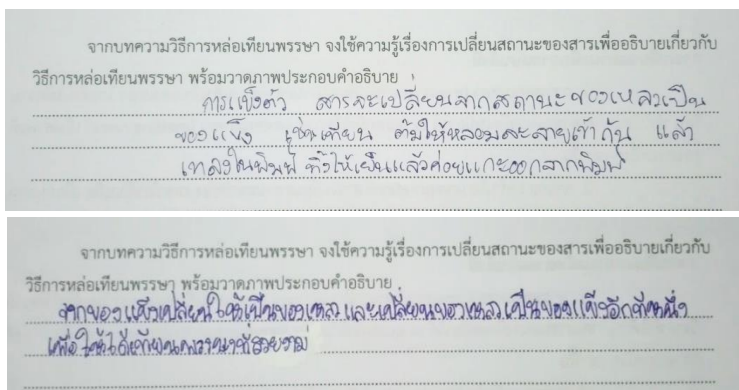 จากบทความวิธีการหล่อเทียนพรรษา จงใช้ความรู้เรื่องการเปลี่ยนสถานะของสารเพื่ออธิบายเกี่ยวกับ
วิธีการหล่อเทียนพรรษา พร้อมวาดภาพประกอบคำอธิบาย
การแข็งตัว สารจะเปลี่ยนจากสถานะของเหลวเป็น
ของแข็ง เช่น เทียน ต้มให้หลอมละลายเข้ากัน แล้ว
เทลงในพิมพ์ ทิ้งให้เย็นแล้วค่อยแกะออกจากพิมพ์
จากบทความวิธีการหล่อเทียนพรรษา จงใช้ความรู้เรื่องการเปลี่ยนสถานะของสารเพื่ออธิบายเกี่ยวกับ
วิธีการหล่อเทียนพรรษา พร้อมวาดภาพประกอบคำอธิบาย
จากของแข็งเปลี่ยนให้เป็นของเหลว และเปลี่ยนของเหลวเป็นของแข็งอีกทีหนึ่ง
เพื่อให้ได้เทียนพรรษาที่สวยงาม